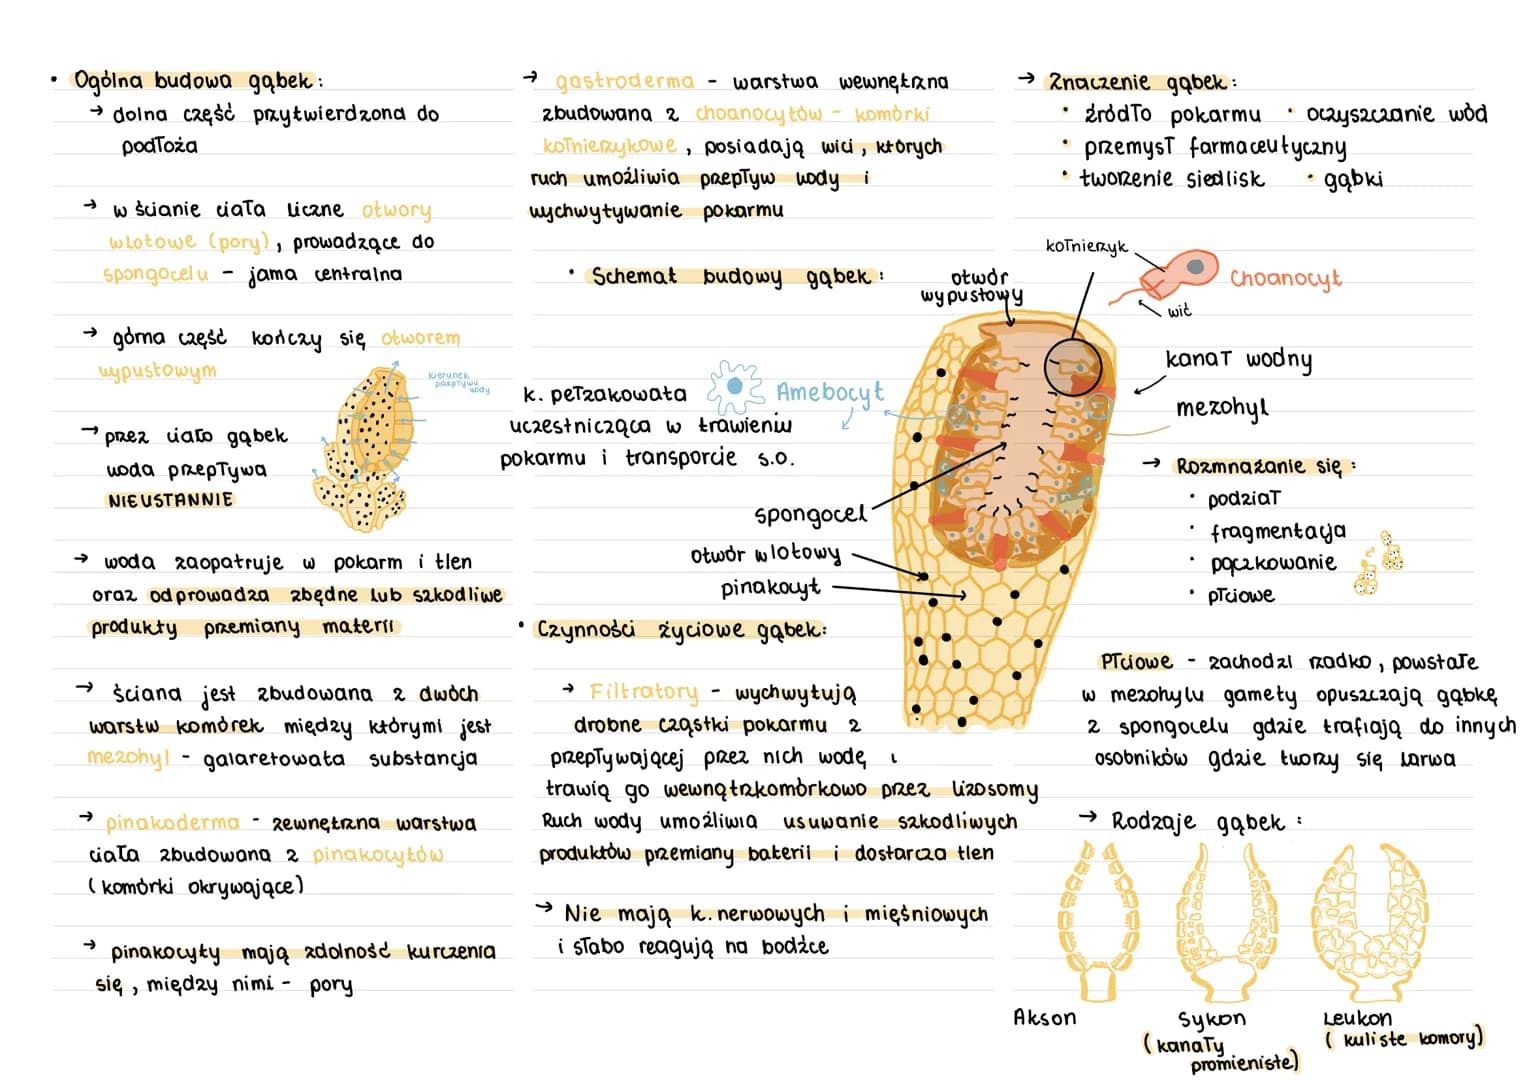 • Ogólna budowa gąbek:
→ dolna część przytwierdzona do
podłoża
→ w ścianie ciała liczne otwory
wlotowe (pory), prowadzące do
spongocelu - jama centralna
→ górna część kończy się otworem
wypustowym
kierunek
przepływu
wody
→ przez ciało gąbek
woda przepływa
NIEUSTANNIE
→ woda zaopatruje w pokarm i tlen
oraz odprowadza zbędne lub szkodliwe
produkty przemiany materii
→ ściana jest zbudowana z dwóch
warstw komórek między którymi jest
mezohyl - galaretowata substancja
→ pinakoderma - zewnętrzna warstwa
ciała zbudowana z pinakocytów
(komórki okrywające)
→ pinakocyty mają zdolność kurczenia
się, między nimi - pory
→ gastroderma - warstwa wewnętrzna
zbudowana z choanocytów - komórki
kołnierzykowe, posiadają wici, których
ruch umożliwia przepływ wody i
wychwytywanie pokarmu
• Schemat budowy gąbek:
otwór
wypustowy
kołnierzyk
Choanocyt
wić
kanał wodny
mezohyl
k. pełzakowata
Amebocyt
uczestnicząca w trawieniu
pokarmu i transporcie s.o.
spongocel
otwór wlotowy
pinakocyt
• Czynności życiowe gąbek:
→ Filtratory - wychwytują
drobne cząstki pokarmu z
przepływającej przez nich wodę i
trawią go wewnątrzkomórkowo przez lizosomy
Ruch wody umożliwia usuwanie szkodliwych
produktów przemiany baterii i dostarcza tlen
→ Nie mają k. nerwowych i mięśniowych
i słabo reagują na bodźce
→ Znaczenie gąbek:
• źródło pokarmu • oczyszczanie wód
• przemysł farmaceutyczny
• tworzenie siedlisk • gąbki
→ Rozmnażanie się:
• podział
• fragmentacja
• pączkowanie
• płciowe
Płciowe - zachodzi rzadko, powstałe
w mezohylu gamety opuszczają gąbkę
z spongocelu gdzie trafiają do innych
osobników gdzie tworzy się larwa
→ Rodzaje gąbek:
Akson
Sykon
(kanały
promieniste)
Leukon
(kuliste komory)